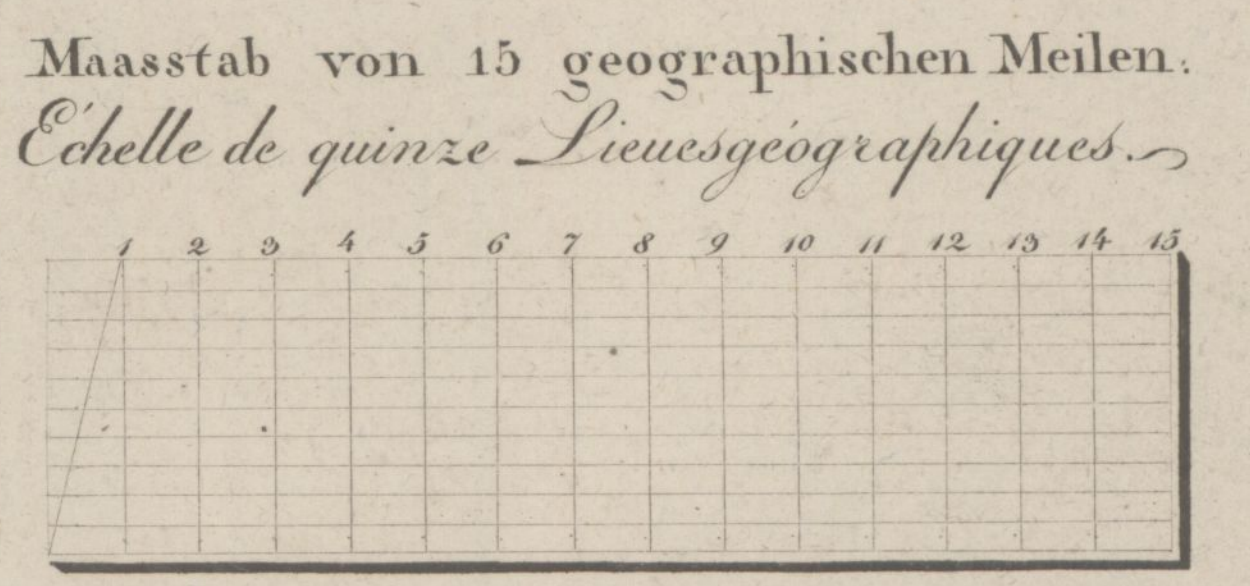 Maasstab von 15 geographischen Meilen.
Échelle de quinze Lieues géographiques.
1 2 3 4 5 6 7 8 9 10 11 12 13 14 15